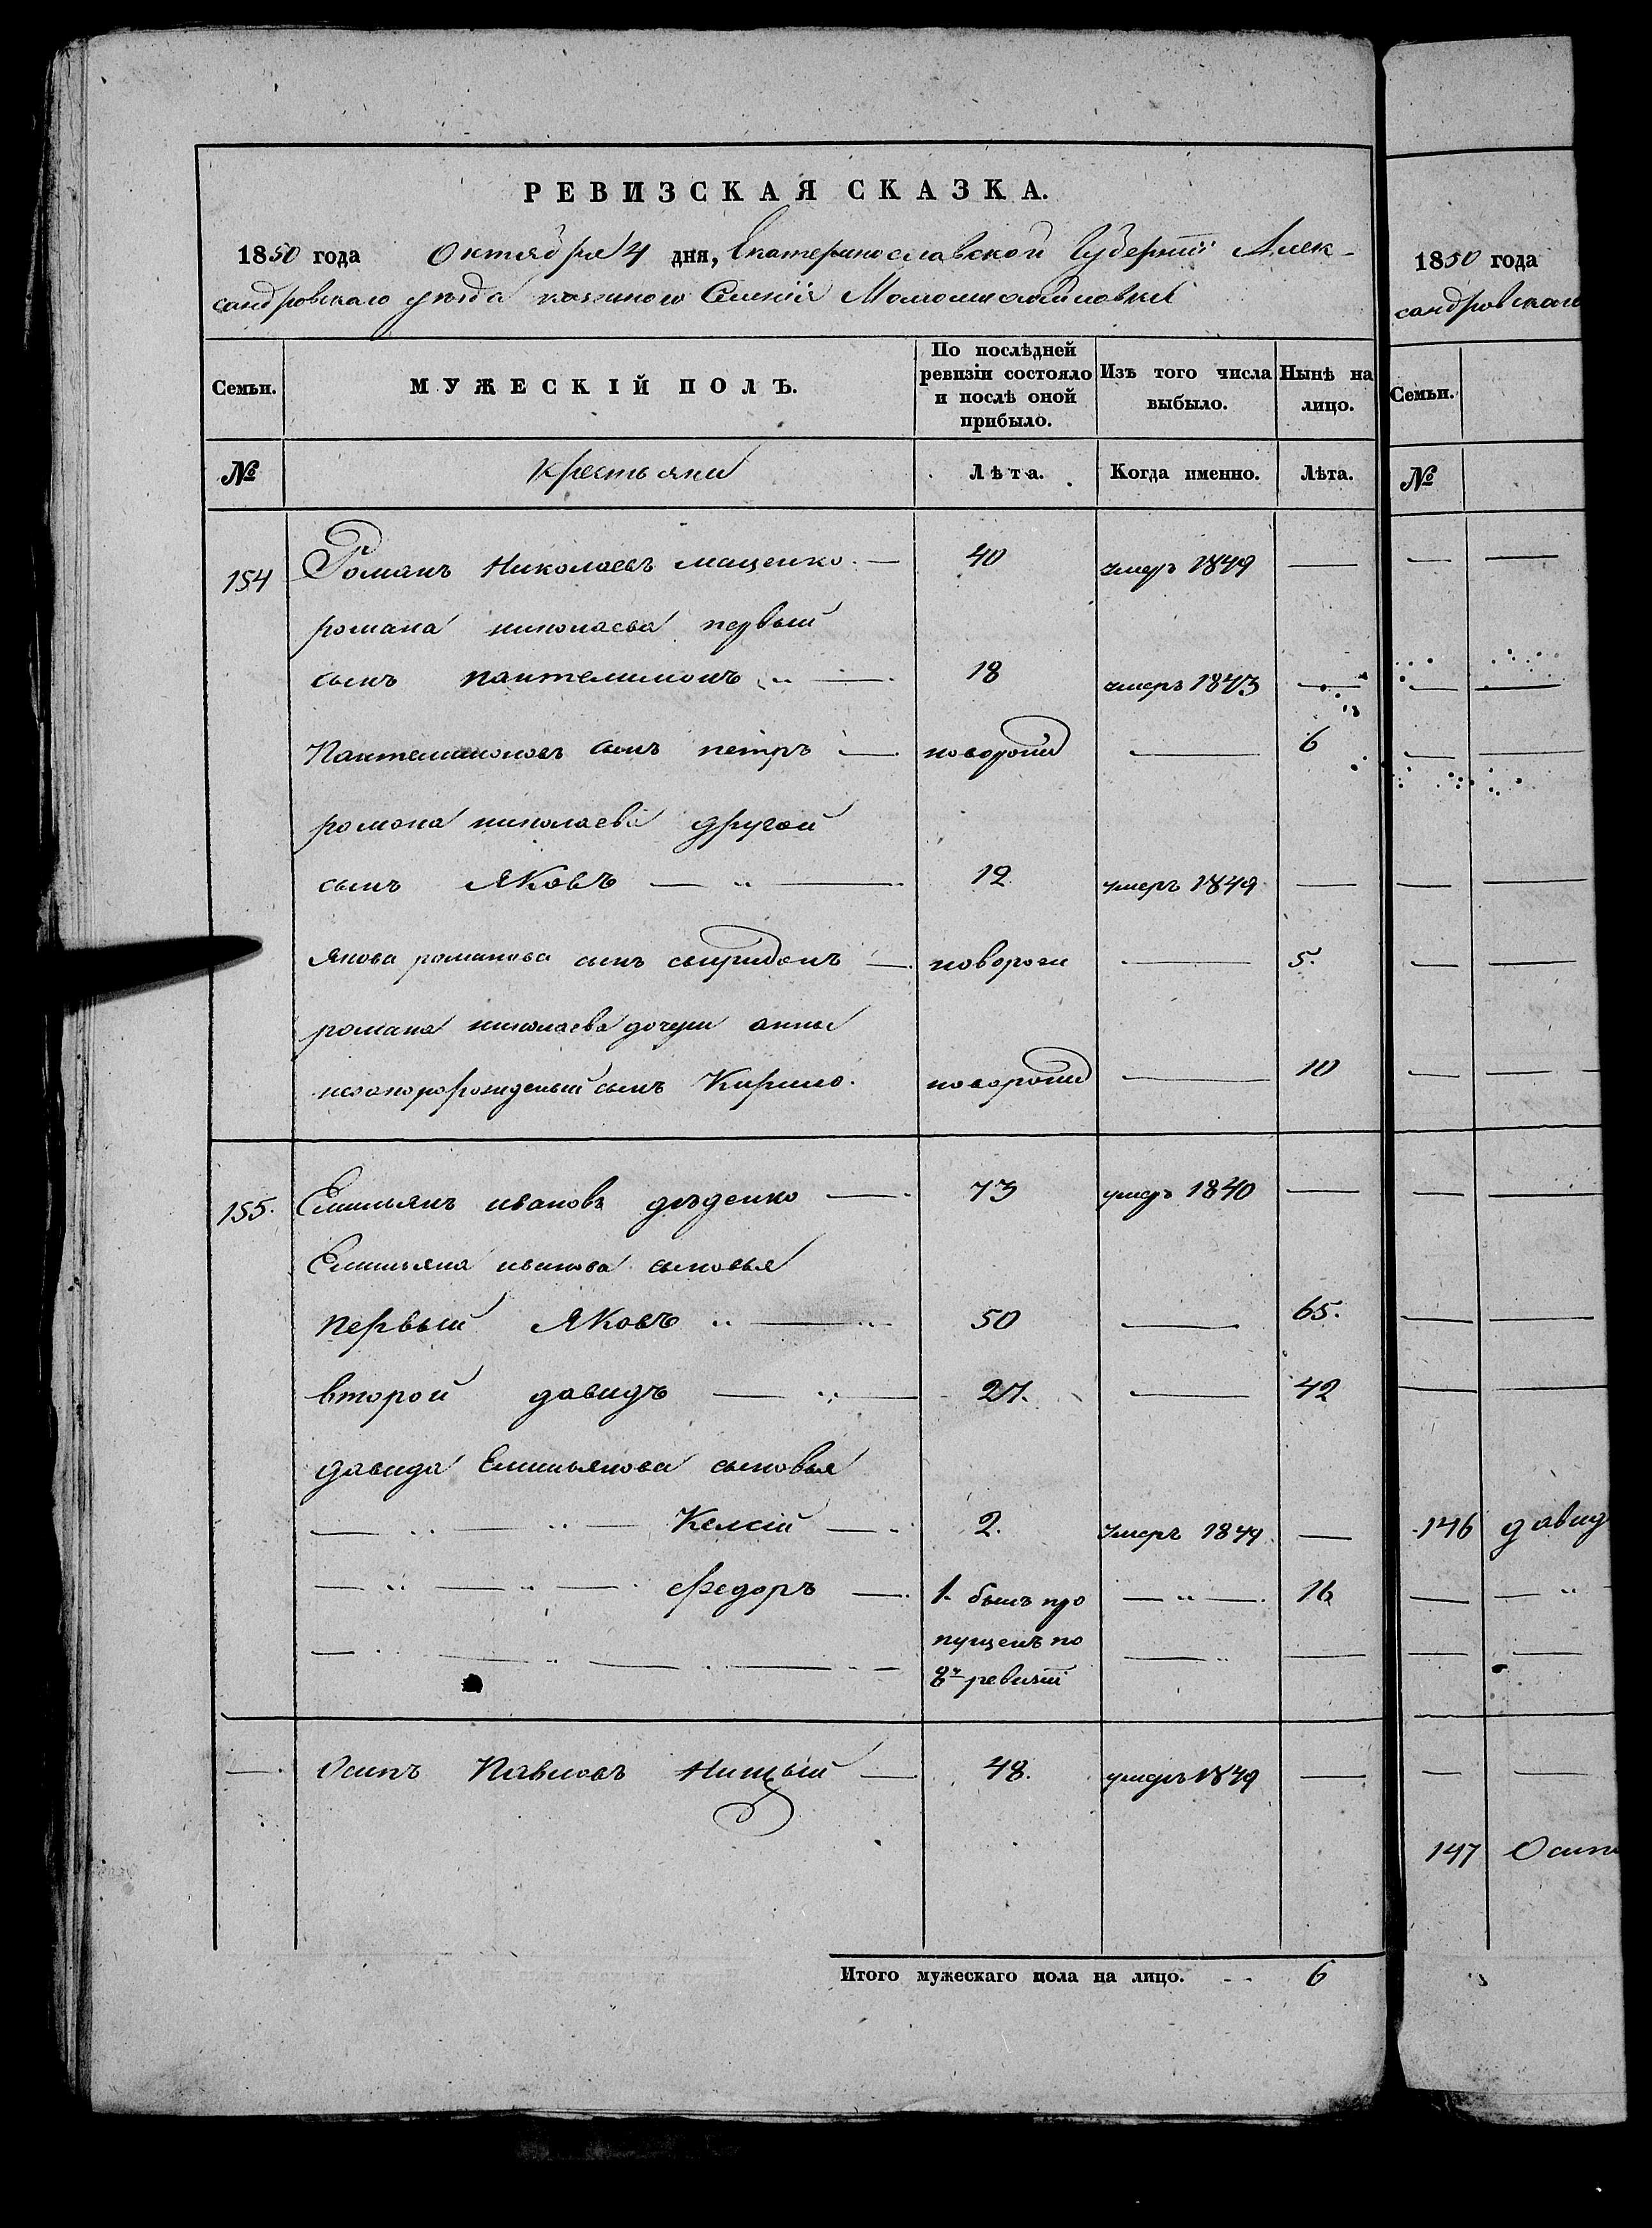 РЕВИЗСКАЯ СКАЗКА.
1850 года Октября 4 дня, Екатеринославской Губерніи Алек-
сандровскаго уѣзда казеннаго Селенія
Семьи. МУЖЕСКІЙ ПОЛЪ. По послѣдней ревизіи состояло и послѣ оной прибыло. Изъ того числа выбыло. Нынѣ на лицо.
№ Крестьяни Лѣта. Когда именно. Лѣта.
154 Романъ Николаевъ мащенко — 40 умеръ 1849 —
романа николаева первый
сынъ пантелимонъ — 18 умеръ 1843 —
Пантелимоновъ сынъ петръ — новорожд — 6
романа николаева другой
сынъ Яковъ — 12 умеръ 1849 —
Якова романова сынъ свиридонъ — новорож — 5.
романа николаева дочери анны
незаконорожденый сынъ Кирило. новорожд — 10
155. Емильянъ ивановъ дѣденко — 73 умеръ 1840 —
Емильяна иванова сыновья
первый Яковъ — 50 — 65.
второй давидъ — 27. — 42
давида Емильянова сыновья
— Келсій — 2. умеръ 1849 —
— федоръ — 1. былъ про — 16
пущенъ по
8й ревизіи
— Осипъ Павловъ Нищый — 48. умеръ 1849 —
Итого мужескаго пола на лицо. - - 6
1850 года
сандровскаго
Семьи.
№
146 давид
147 Осип